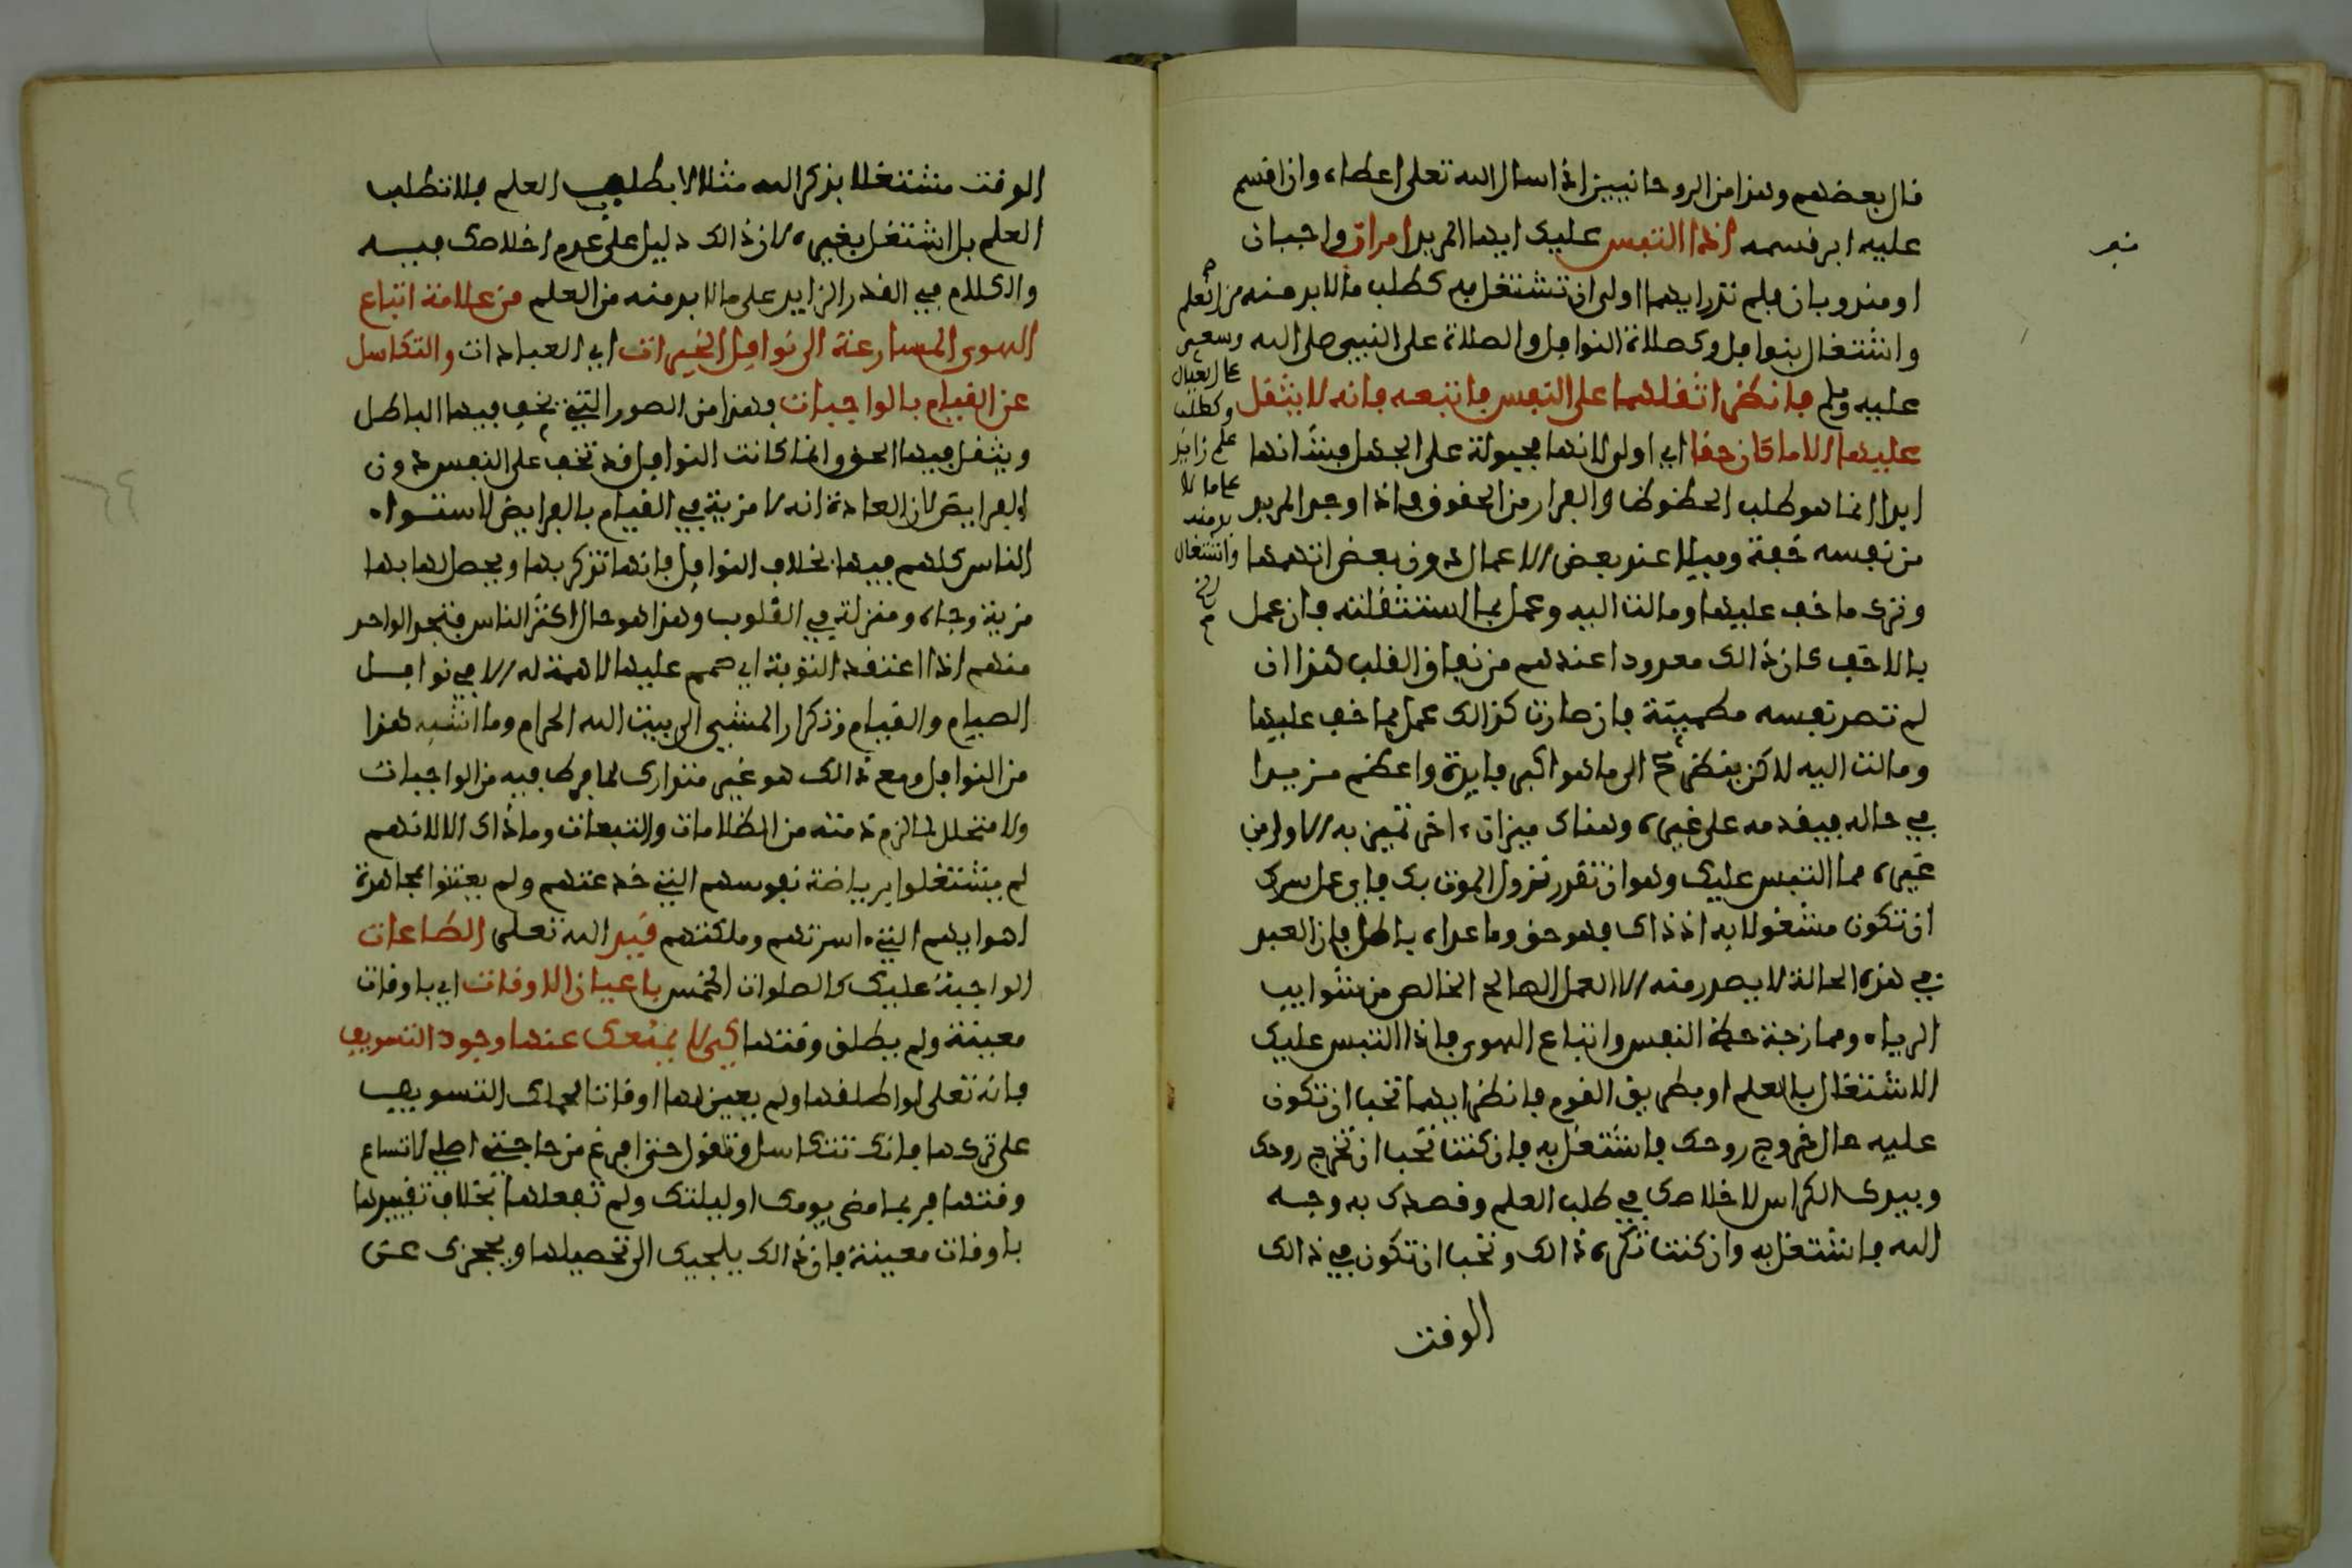 قال بعضهم وهذا من الروحانيين اذا سال الله تعلى اعطاه وان اقسم
عليه ابر قسمه اذا التبس عليك ايها المريد امران واجبان
او مندوبان فلم تدر ايهما اولى ان تشتغل به كطلب ما لا بد منه من العلم
واشتغال بنوافل وكصلاة النوافل والصلاة على النبيي صلى الله
عليه وسلم فانظر اثقلهما على النفس فاتبعه فانه لا يثقل
عليها الا ما كان حقا اي اولى لانها مجبولة على الجهل فشانها
ابدا انما هو طلب الحظوظ والفرار من الحقوق فاذا وجد المريد
من نفسه خفة وميلا عند بعض الاعمال دون بعض اتهمها
وترك ما خف عليها ومالت اليه وعمل بما استثقلته فان عمل
بالاخف كان ذالك معدودا عندهم من نفاق القلب هذا ان
لم تصر نفسه مطمينة فان صارت كذالك عمل بما خف عليها
ومالت اليه لاكن ينظر الى ما هو اكبر فايدة واعظم مزيدا
في حاله فيقدمه على غيره وهناك ميزان ءاخر تميز به الاولى من
غيره مما التبس عليك وهو ان تقدر نزول الموت بك فاي عمل سرك
ان تكون مشغولا به اذ ذاك فهو حق وما عداه باطل فان العبد
في هذه الحالة لا يصدر منه الا العمل الصالح الخالص من شوايب
الرياء وممازجة حظ النفس واتباع الهوى فاذا التبس عليك
الاشتغال بالعلم او بطريق القوم فانظر ايهما تحب ان تكون
عليه حال خروج روحك فاشتغل به فان كنت تحب ان تخرج روحك
وبيدك الكراس لاخلاصك في طلب العلم وقصدك به وجه
الله فاشتغل به وان كنت تكره ذالك وتحب ان تكون في ذالك
الوقت
وسعي
على العيال
وكطلب
علم زايد
على ما لا
بد منه
واشتغال
الوقت مشتغلا بذكر الله مثلا لا بطلب العلم فلا تطلب
العلم بل اشتغل بغيره لان ذالك دليل على عدم اخلاصك فيه
والكلام في القدر الزايد على ما لا بد منه من العلم من علامة اتباع
الهوى المسارعة الى نوافل الخيرات اي العبادات والتكاسل
عن القيام بالواجبات فهذا من الصور التي يخف فيها الباطل
ويثقل فيها الحق وانما كانت النوافل قد تخف على النفس دون
الفرايض لان العادة انه لا مزية في القيام بالفرايض لاستواء
الناس كلهم فيها بخلاف النوافل فانها تذكر بها ويحصل لها بها
مزية وجاه ومنزلة في القلوب وهذا هو حال اكثر الناس فتجد الواحد
منهم اذا اعتقد التوبة اي صمم عليها لا همة له الا في نوافل
الصيام والقيام وتكرار المشيي الى بيت الله الحرام وما اشبه هذا
من النوافل ومع ذالك هو غير متدارك لما فرط فيه من الواجبات
ولا متحلل لما لزم ذمته من الظلامات والتبعات وما ذاك الا لانهم
لم يشتغلوا برياضة نفوسهم التي خدعتهم ولم يعتنوا بمجاهدة
اهوايهم التي اسرتهم وملكتهم قيد الله تعلى الطاعات
الواجبة عليك كالصلوات الخمس باعيان الاوقات اي باوقات
معينة ولم يطلق وقتها كي لا يمنعك عنها وجود التسويف
فانه تعلى لو اطلقها ولم يعين لها اوقاتا لحملك التسويف
على تركها فانك تتكاسل وتقول حتى افرغ من حاجتي اصلي لاتساع
وقتها فربما مضى يومك او ليلتك ولم تفعلها بخلاف تقييدها
باوقات معينة فان ذالك يلجيك الى تحصيلها ويحجزك عن